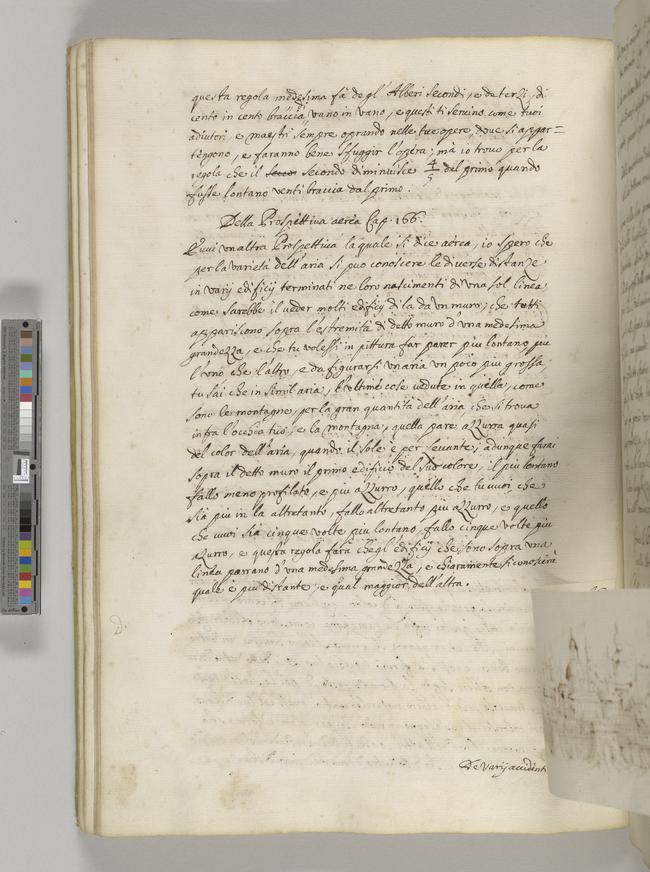 questa regola medesima fà degl'Alberi secondi, e de terzi, di
cento in cento braccia, vano in vano, e questi ti servino come tuoi
adiutori, e maestri sempre oprando nelle tue opere, dove si appar=
tengono, e faranno bene sfuggir l'opera; mà io trovo per la
regola che il secondo diminuisce 4/5 dal primo quando
fusse lontano venti braccia dal primo.
Della Prospettiva aerea Cap. 166.
Evvi un altra Prospettiva la quale si dice aerea, io spero che
per la varietà dell'aria si può conoscere le diverse distanze
in varij edificij terminati ne loro nascimenti da una sol linea
come sarebbe il veder molti edificij di la da un muro; che tutti
appariscono sopra l'estremità di detto muro d'una medesima
grandezza, e che tu volessi in pittura far parer piu lontano piu
l'uno che l'altro, e da figurarsi un aria un poco piu grossa,
tu sai che in simil aria, l'ultime cose vedute in quella, come
sono le montagne, per la gran quantità dell'aria che si trova
infra l'occhio tuo, e la montagna, quella pare azzurra quasi
del color dell'aria, quando il sole è per levante; adunque farai
sopra il detto muro il primo edificio del suo colore, il piu lontano
fallo meno profilato, e piu azzurro, quello che tu vuoi che
sia piu in la altretanto, fallo altretanto piu azzurro, e quello
che vuoi sia cinque volte piu lontano, fallo cinque volte piu
azurro, e questa regola farà che gl'edificij che sono sopra una
linea parrano d'una medesima grandezza, e chiaramente si conoscerà
quale è piu distante, e qual maggior dell'altra.
De varij accidenti